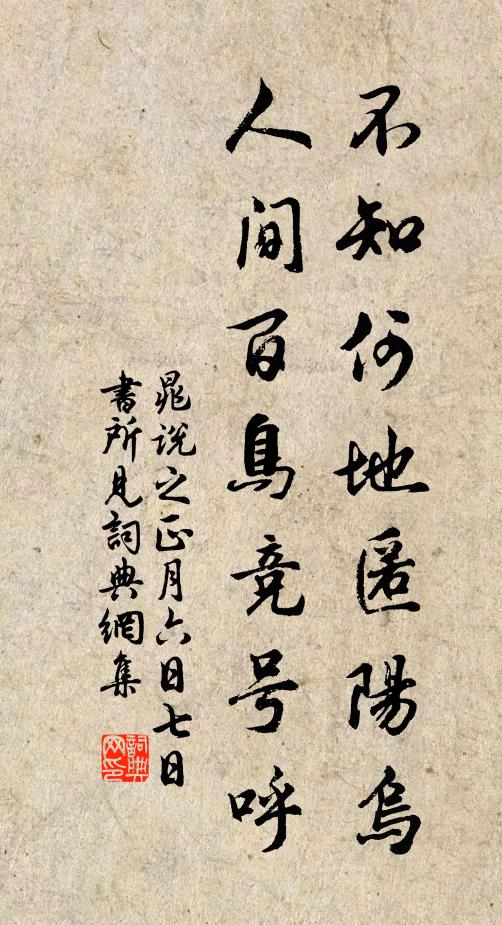 不知何地匿陽烏
人間百鳥竞号呼
晁説之正月六日七日
書所見詞典網集
詞典網印